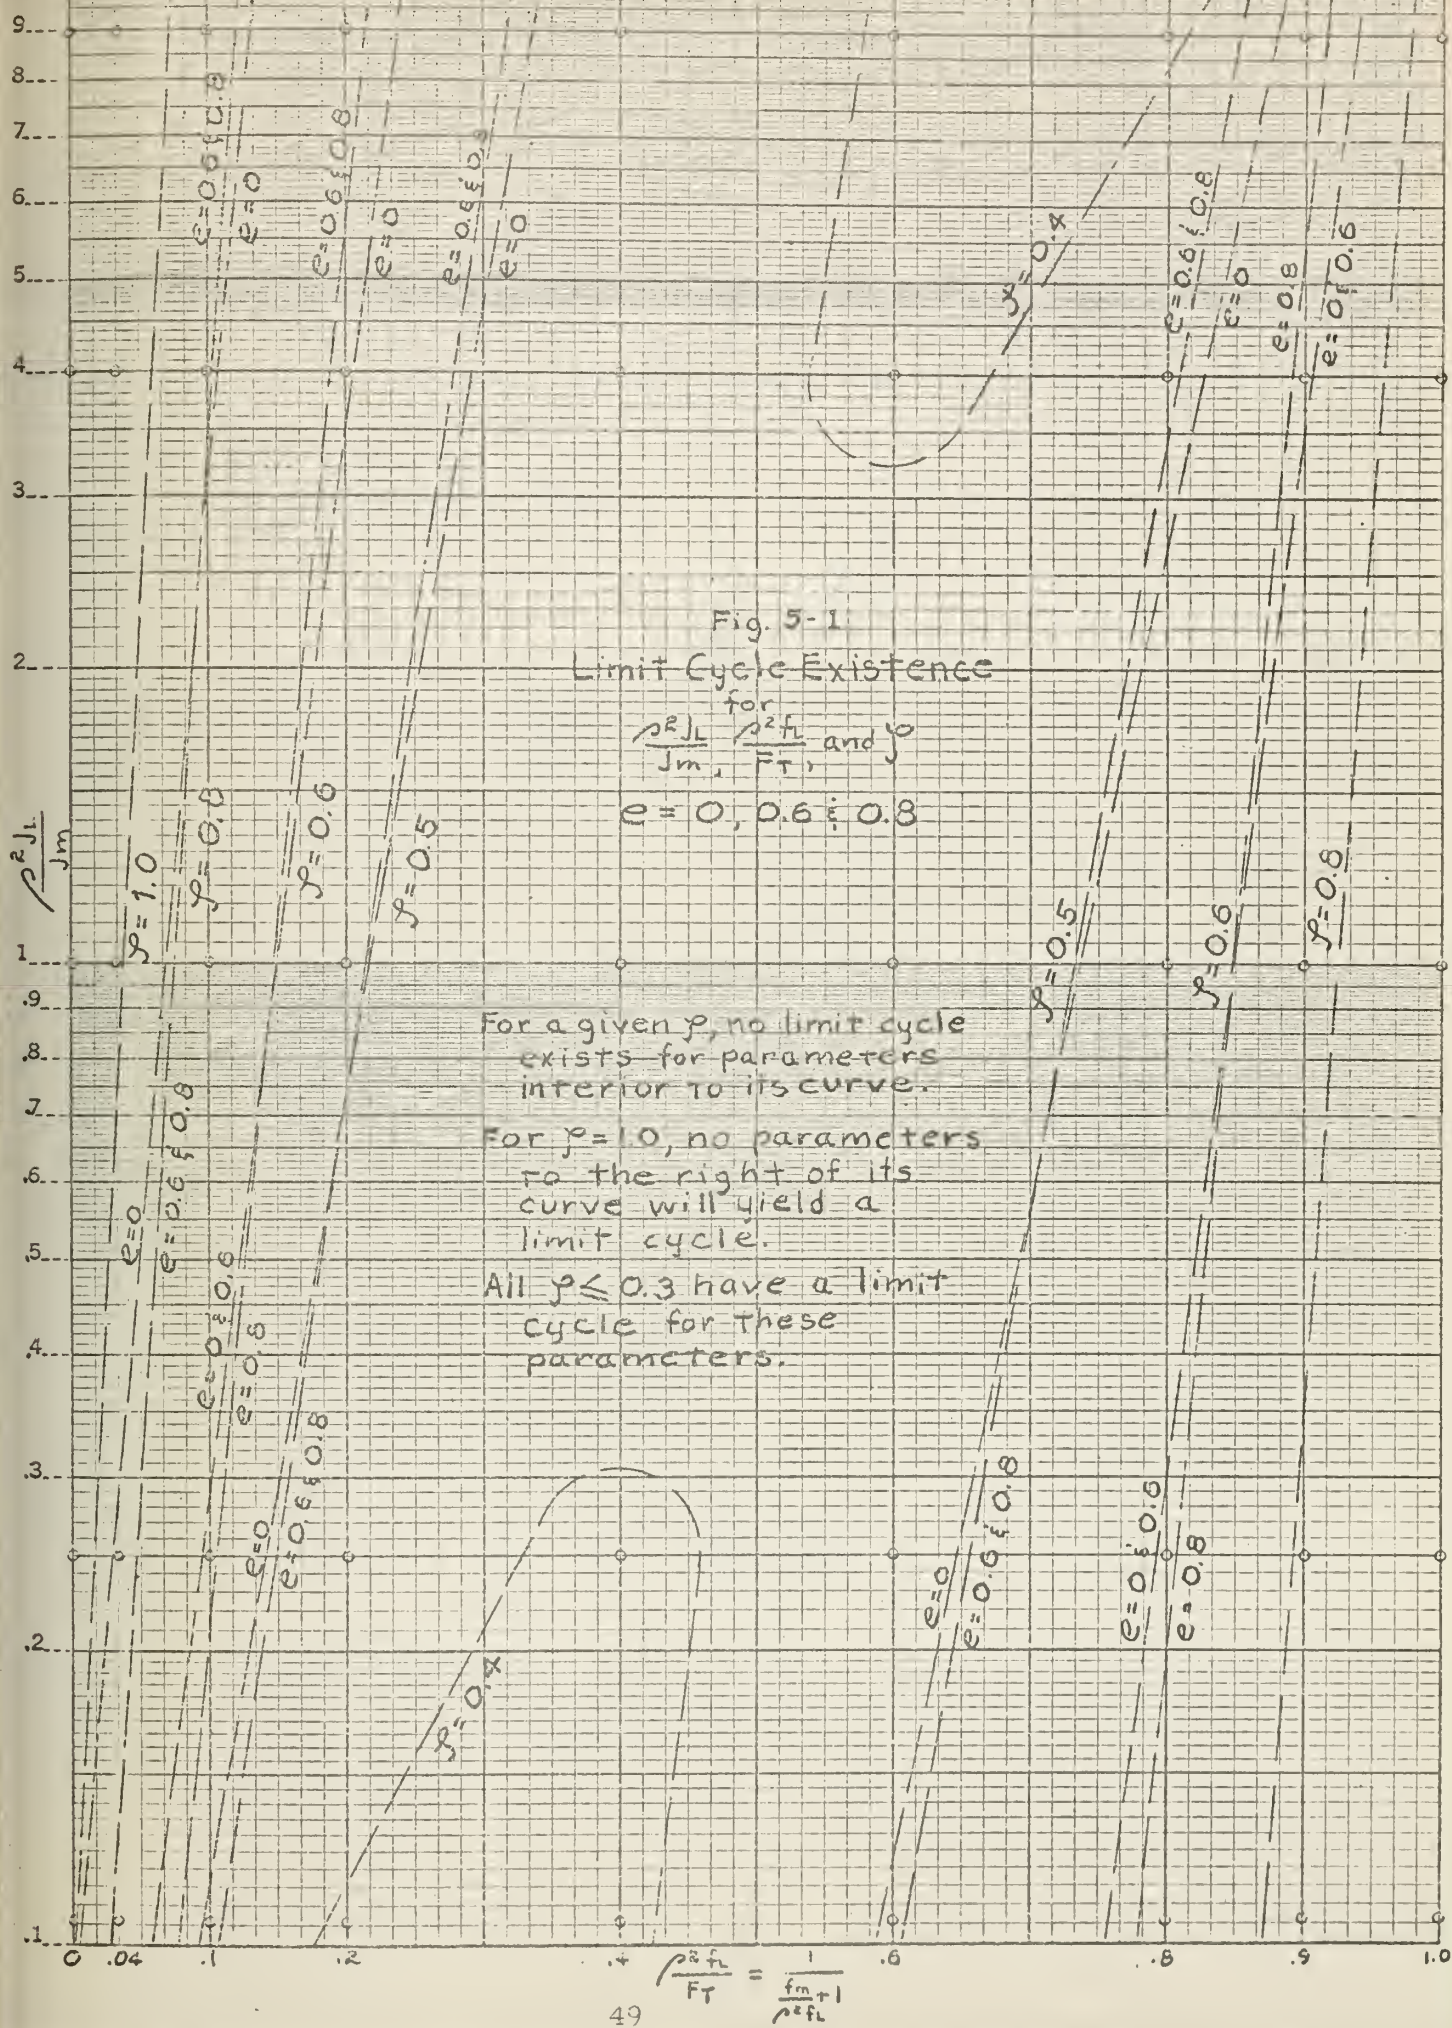 9
8
7
6
5
4
3
2
1
.9
.8
.7
.6
.5
.4
.3
.2
.1
ρ²J_L / J_m
e=0.6 & 0.8
e=0
e=0.6 & 0.8
e=0
e=0.6 & 0.8
e=0
ζ=0.4
e=0.6 & 0.8
e=0
e=0.8
e=0 & 0.6
Fig. 5-1
Limit Cycle Existence
for
ρ²J_L / J_m, ρ²f_L / F_T, and ζ
e = 0, 0.6 & 0.8
ζ=1.0
ζ=0.8
ζ=0.6
ζ=0.5
ζ=0.5
ζ=0.6
ζ=0.8
For a given ζ, no limit cycle
exists for parameters
interior to its curve.
For ζ=1.0, no parameters
to the right of its
curve will yield a
limit cycle.
All ζ≤0.3 have a limit
cycle for these
parameters.
e=0
e=0.6 & 0.8
e=0 & 0.6
e=0.8
e=0
e=0.6 & 0.8
ζ=0.4
e=0
e=0.6 & 0.8
e=0 & 0.6
e=0.8
0 .04 .1 .2 .4 .6 .8 .9 1.0
ρ²f_L / F_T = 1 / (f_m / ρ²f_L + 1)
49